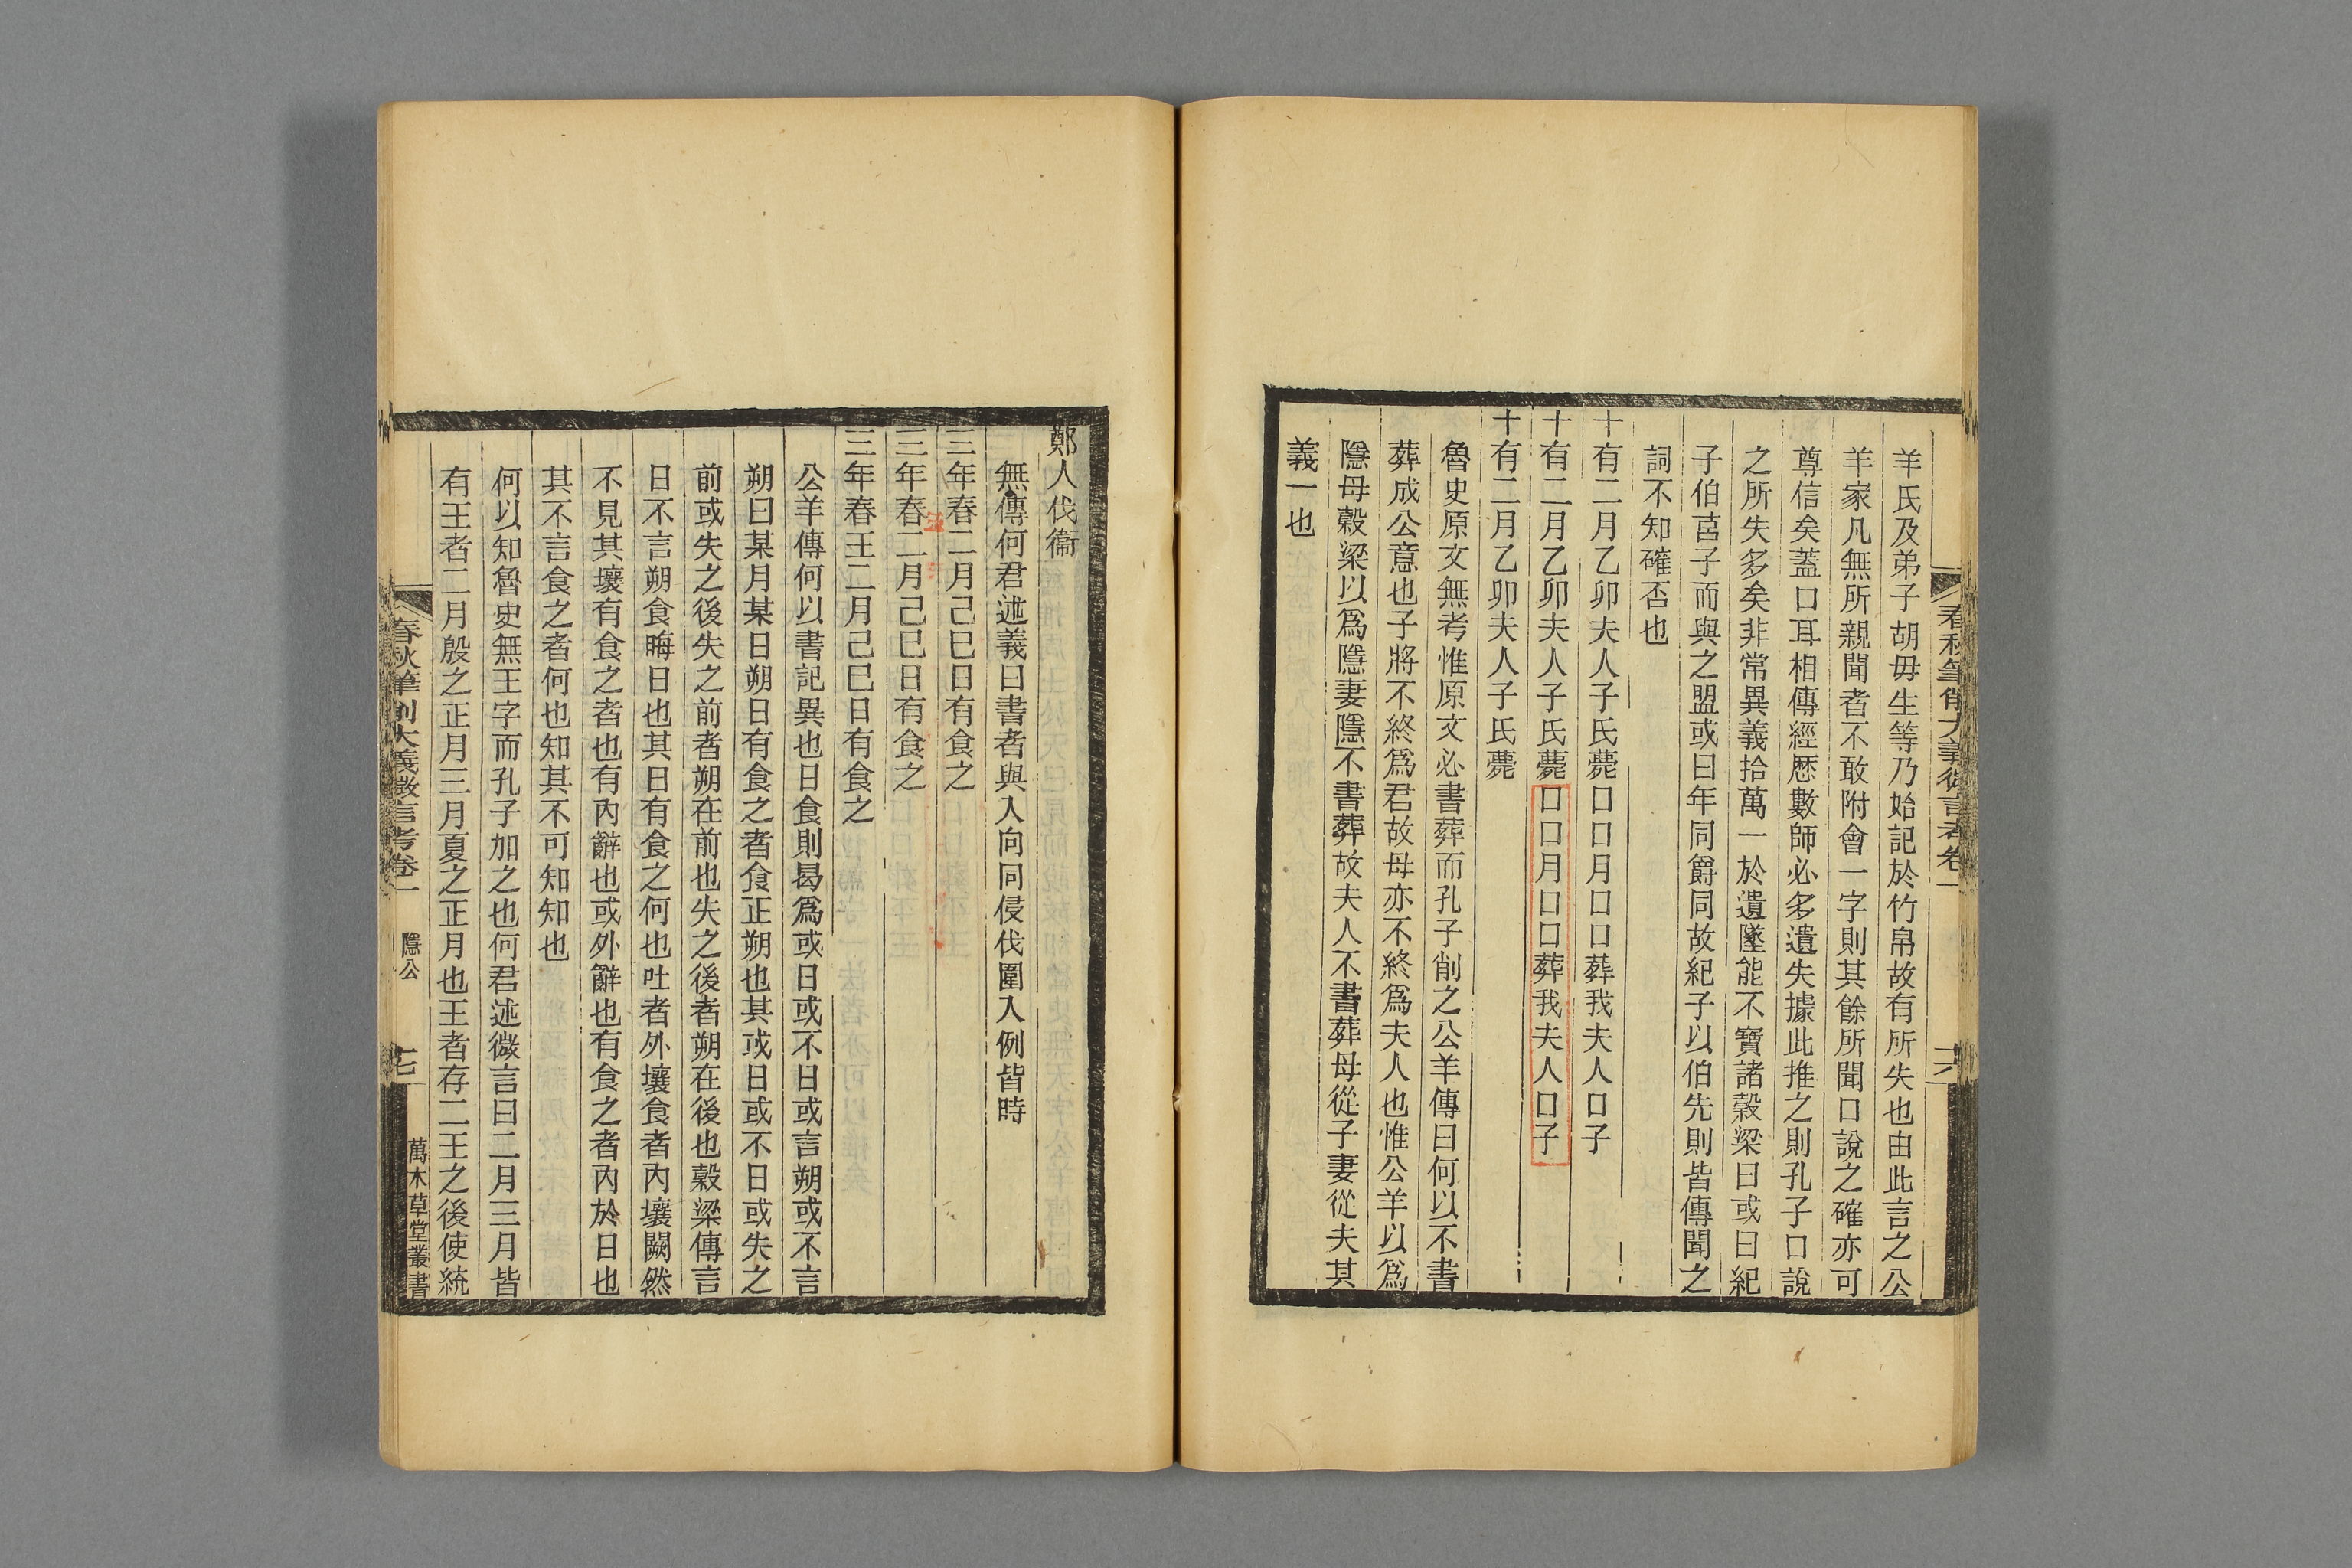 春秋筆削大義微言考卷一
十六
羊氏及弟子胡毋生等乃始記於竹帛故有所失也由此言之公
羊家凡無所親聞者不敢附會一字則其餘所聞口說之確亦可
尊信矣蓋口耳相傳經歷數師必多遺失據此推之則孔子口說
之所失多矣非常異義拾萬一於遺墜能不寶諸穀梁曰或曰紀
子伯莒子而與之盟或曰年同爵同故紀子以伯先則皆傳聞之
詞不知確否也
十有二月乙卯夫人子氏薨口口月口口葬我夫人口子
十有二月乙卯夫人子氏薨口口月口口葬我夫人口子
十有二月乙卯夫人子氏薨
魯史原文無考惟原文必書葬而孔子削之公羊傳曰何以不書
葬成公意也子將不終爲君故母亦不終爲夫人也惟公羊以爲
隱母穀梁以爲隱妻隱不書葬故夫人不書葬母從子妻從夫其
義一也
鄭人伐衞
無傳何君述義曰書者與入向同侵伐圍入例皆時
三年春二月己巳日有食之
三年春二月己巳日有食之
王
三年春王二月己巳日有食之
公羊傳何以書記異也日食則曷爲或日或不日或言朔或不言
朔曰某月某日朔日有食之者食正朔也其或日或不日或失之
前或失之後失之前者朔在前也失之後者朔在後也穀梁傳言
日不言朔食晦日也其日有食之何也吐者外壤食者內壤闕然
不見其壤有食之者也有內辭也或外辭也有食之者內於日也
其不言食之者何也知其不可知知也
何以知魯史無王字而孔子加之也何君述微言曰二月三月皆
有王者二月殷之正月三月夏之正月也王者存二王之後使統
春秋筆削大義微言考卷一
隱公
十七
萬木草堂叢書